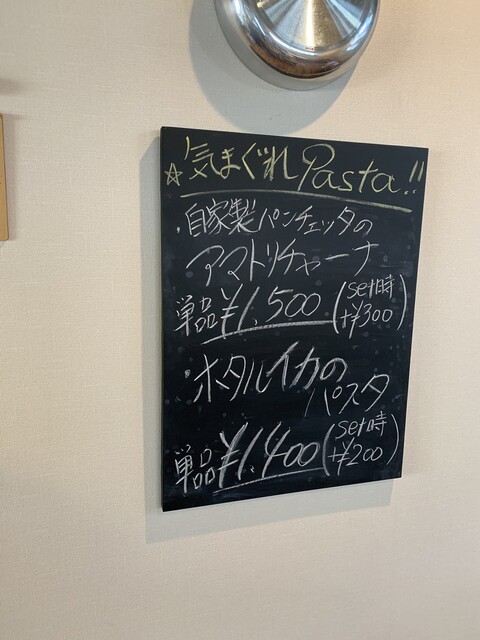 ☆気まぐれPasta!!
・自家製パンチェッタの
アマトリチャーナ
単品¥1,500(set時+¥300)
・ホタルイカの
パスタ
単品¥1,400(set時+¥200)